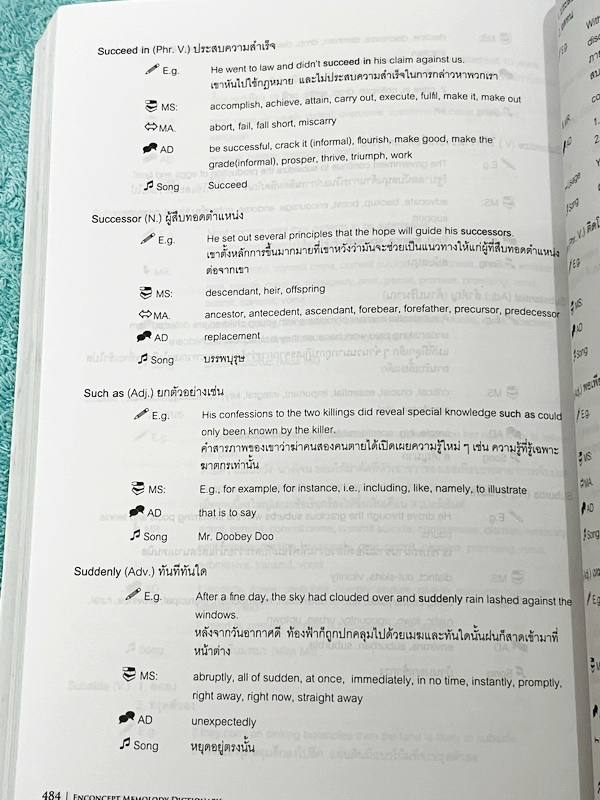 Succeed in (Phr. V.) ประสบความสำเร็จ
E.g. He went to law and didn't succeed in his claim against us.
เขาหันไปใช้กฎหมาย และไม่ประสบความสำเร็จในการกล่าวหาพวกเรา
MS: accomplish, achieve, attain, carry out, execute, fulfil, make it, make out
MA. abort, fail, fall short, miscarry
AD be successful, crack it (informal), flourish, make good, make the
grade(informal), prosper, thrive, triumph, work
Song Succeed
Successor (N.) ผู้สืบทอดตำแหน่ง
E.g. He set out several principles that the hope will guide his successors.
เขาตั้งหลักการขึ้นมากมายที่เขาหวังว่ามันจะช่วยเป็นแนวทางให้แก่ผู้ที่สืบทอดตำแหน่ง
ต่อจากเขา
MS: descendant, heir, offspring
MA. ancestor, antecedent, ascendant, forebear, forefather, precursor, predecessor
AD replacement
Song บรรพบุรุษ
Such as (Adj.) ยกตัวอย่างเช่น
E.g. His confessions to the two killings did reveal special knowledge such as could
only been known by the killer.
คำสารภาพของเขาว่าฆ่าคนสองคนตายได้เปิดเผยความรู้ใหม่ ๆ เช่น ความรู้ที่รู้เฉพาะ
ฆาตกรเท่านั้น
MS: E.g., for example, for instance, i.e., including, like, namely, to illustrate
AD that is to say
Song Mr. Doobey Doo
Suddenly (Adv.) ทันทีทันใด
E.g. After a fine day, the sky had clouded over and suddenly rain lashed against the
windows.
หลังจากวันอากาศดี ท้องฟ้าก็ถูกปกคลุมไปด้วยเมฆและทันใดนั้นฝนก็สาดเข้ามาที่
หน้าต่าง
MS: abruptly, all of sudden, at once, immediately, in no time, instantly, promptly,
right away, right now, straight away
AD unexpectedly
Song หยุดอยู่ตรงนั้น
484 | ENCONCEPT MEMOLODY DICTIONARY